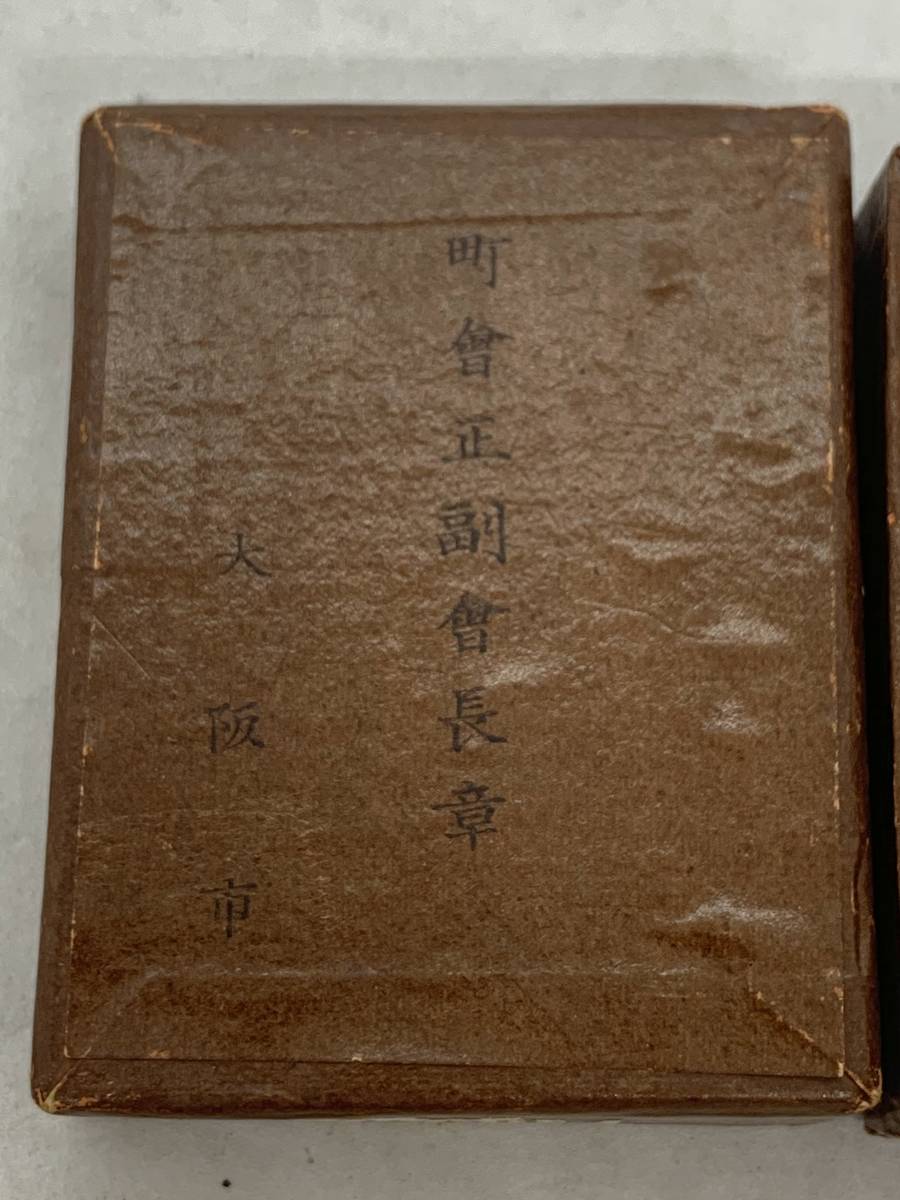 町會正副會長章
大阪市